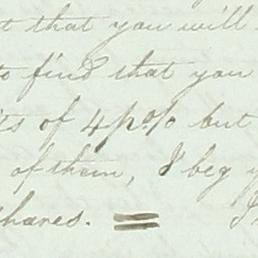 that you will
to find that you
of 4 p% but
of them, I beg
shares. =